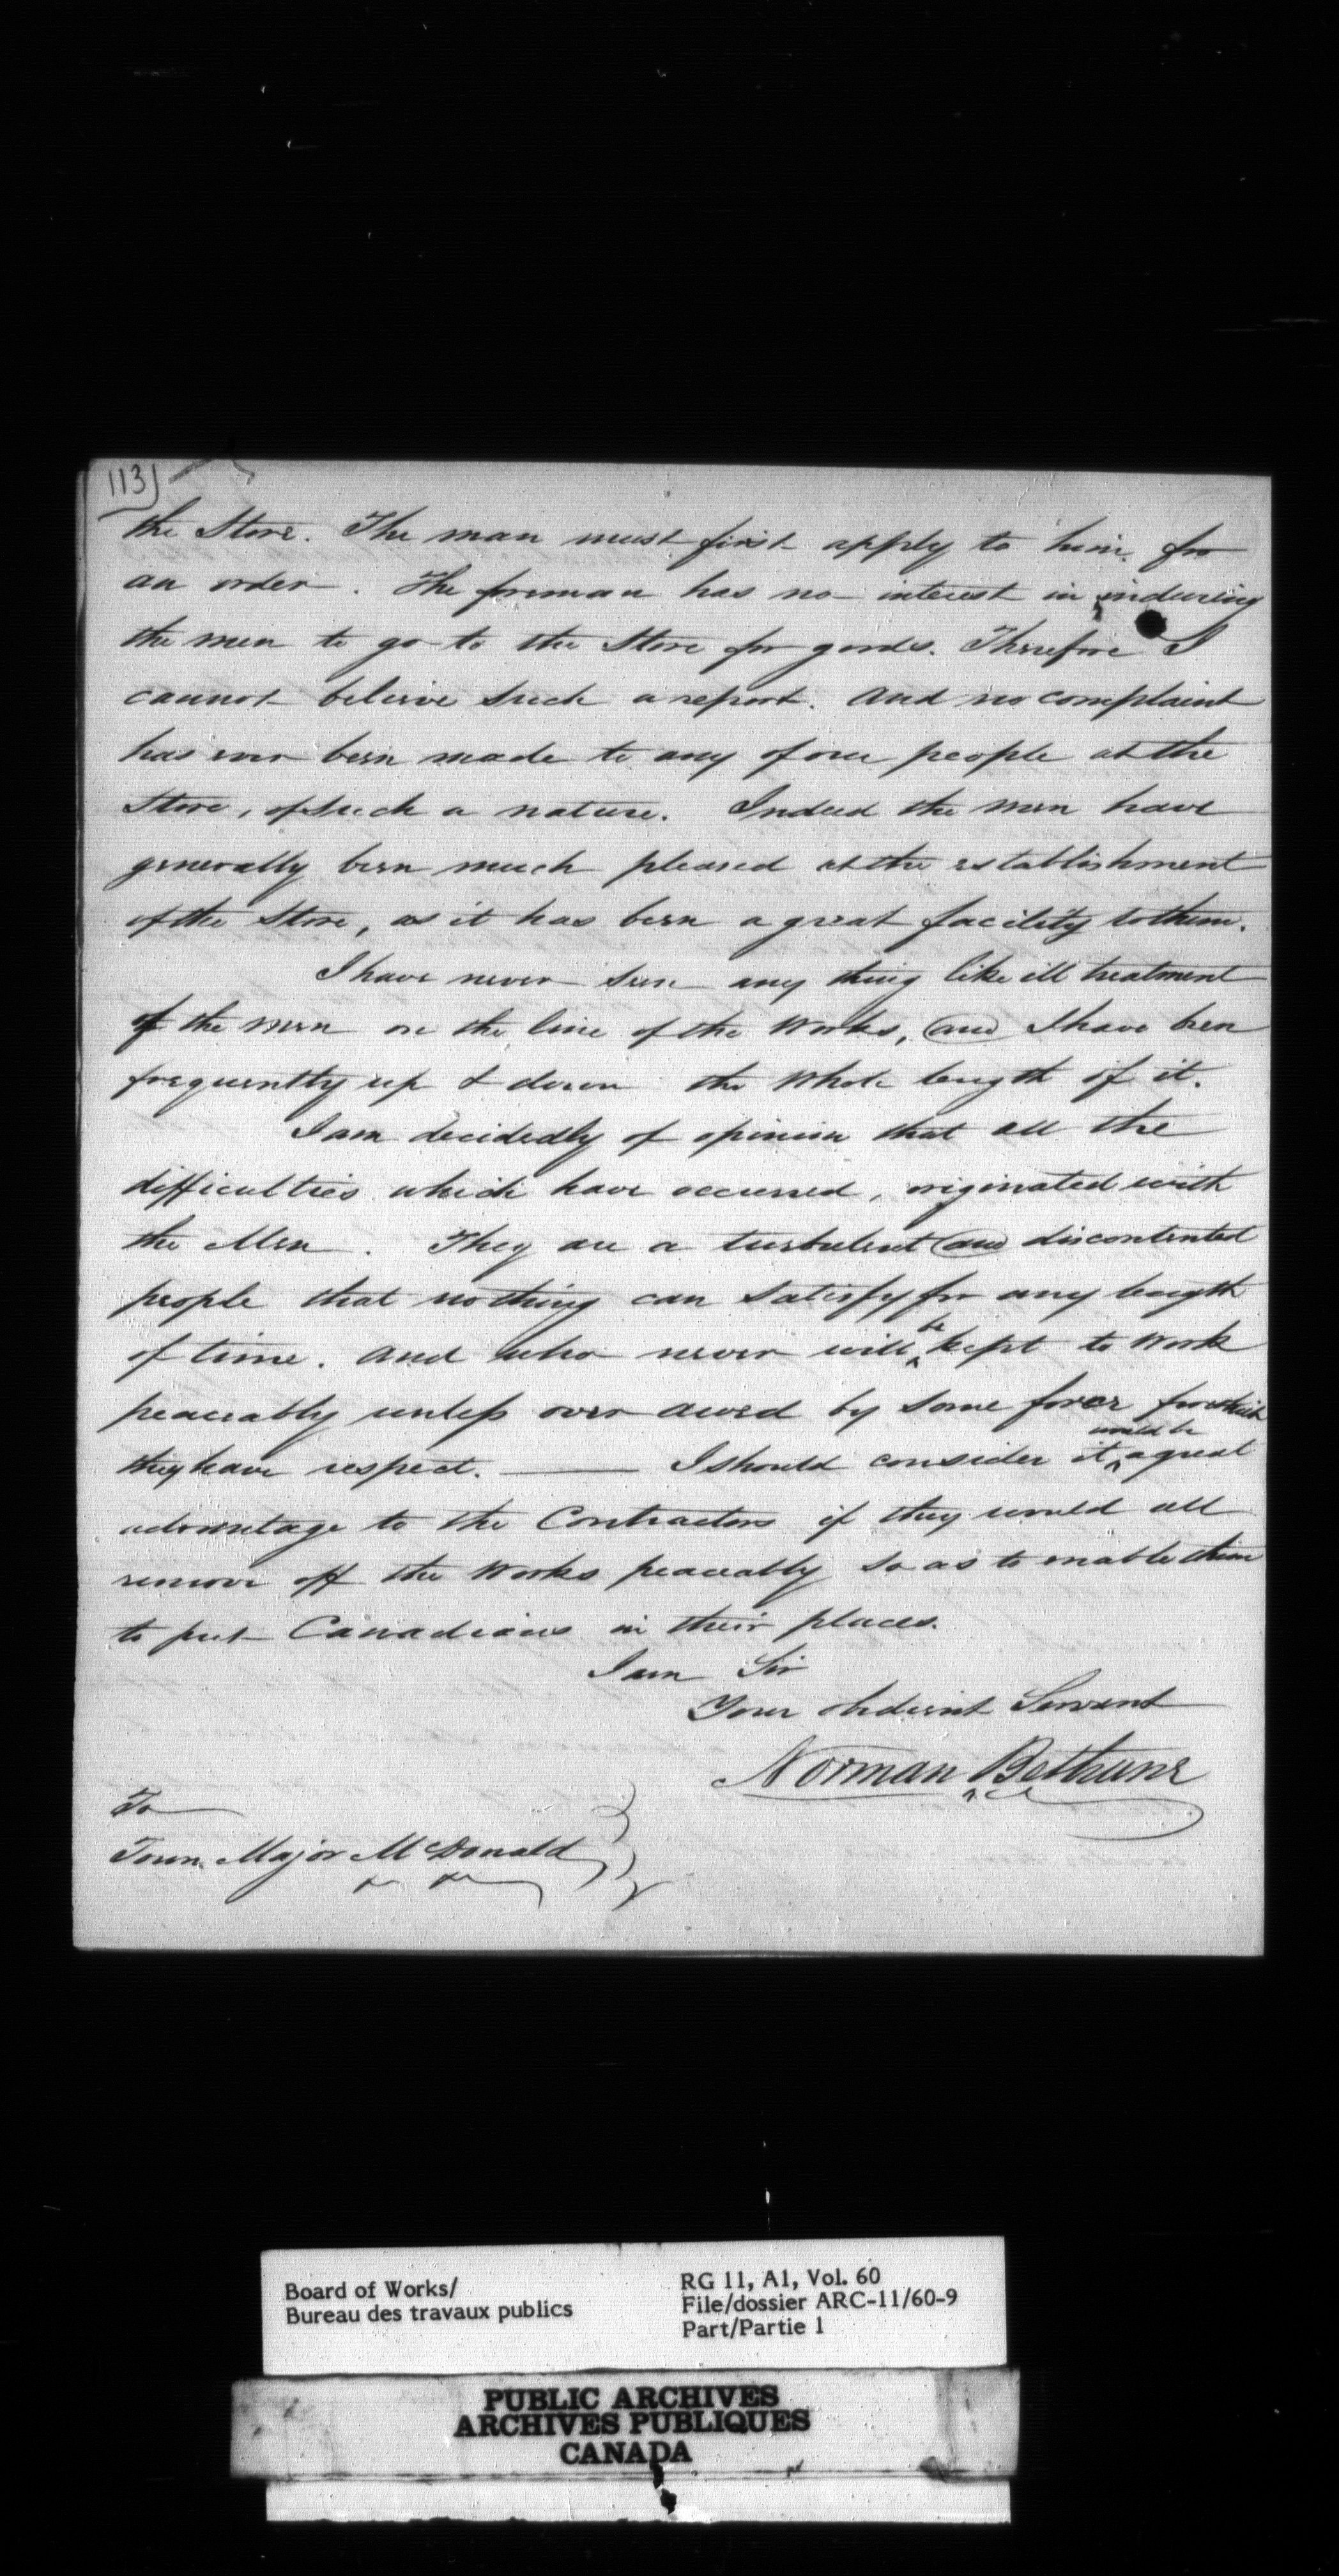 113)
the Store. The man must first apply to him for
an order. The foreman has no interest in inducing
the men to go to the Store for goods. Therefore I
cannot beleive such a report. And no complaint
has ever been made to any of our people at the
Store, of such a nature. Indeed the men have
generally been much pleased at the establishment
of the Store, as it has been a great facility to them.
I have never seen any thing like ill treatment
of the men on the line of the Works, and I have been
frequently up & down the whole length of it.
I am decidedly of opinion that all the
difficulties which have occurred, originated with
the Men. They are a turbulent and discontented
people that nothing can satisfy for any length
of time. And who never will be kept to work
peaceably unless over awed by some force for which
they have respect. — I should consider it would be a great
advantage to the Contractors if they would all
remove off the Works peaceably so as to enable them
to put Canadians in their places.
I am Sir
Your obedient Servant
Norman Bethune
To
Town Major McDonald
Board of Works/
Bureau des travaux publics
RG 11, A1, Vol. 60
File/dossier ARC-11/60-9
Part/Partie 1
PUBLIC ARCHIVES
ARCHIVES PUBLIQUES
CANADA